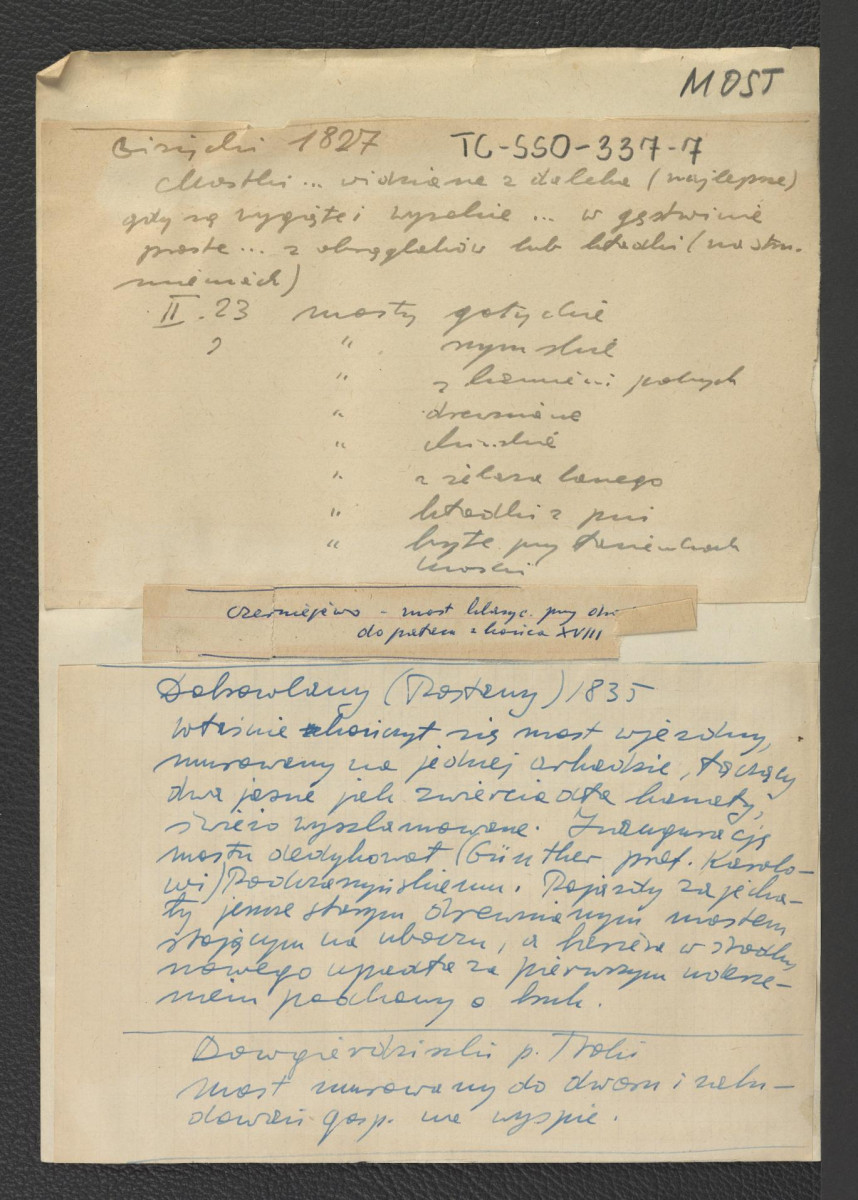 MOST
Giżycki 1827 TC-SSO-337-7
Mostki ... widziane z daleka (najlepsze)
gdy są wygięte i wysokie ... w gęstwinie
proste ... z okrąglaków lub kładki (na stru-
mieniach)
II. 23 mosty gotyckie
" rzymskie
" z kamieni polnych
" drewniane
" chińskie
" z żelaza lanego
" kładki z pni
" kryte przy
Czerniejewo - most klasyc. przy
do pałacu z końca XVIII
Dobrowlany (Rostany) 1835
właśnie kończył się most wjezdny,
murowany na jednej arkadzie, łączący
dwa jasne jak zwierciadła kanały,
świeżo wyszlamowane. Inaugurację
mostu dedykował (Günther prof. Karolo-
wi) Podczaszyńskiemu. Pojazdy zajecha-
ły jeszcze starym drewnianym mostem
stojącym na uboczu, a kareta w środku
nowego upadła za pierwszym uderze-
niem podkowy o bruk.
Dowgierdziszki p. Troki
most murowany do dworu i zabu-
dowań gosp. na wyspie.